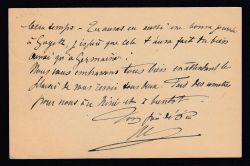 temps - Tu auras eu aussi une bonne pensée
à Goyette, j'espère que cela t'aura fait du bien
ainsi qu'à Germaine.
Nous vous embrassons tous bien en attendant le
plaisir de vous revoir tous deux. Fais des amitiés
pour nous à René et à bientôt
Ton